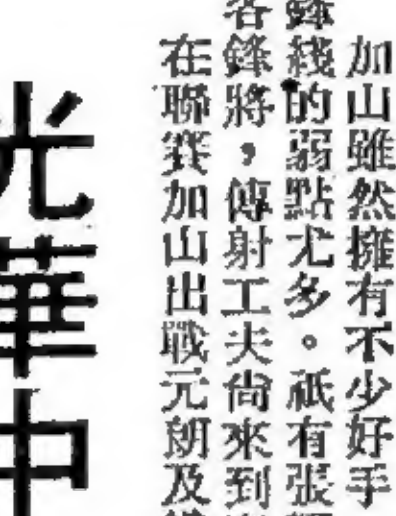 加山雖然擁有不少好手
鋒綫的弱點尤多。祇有張
各鋒將,傳射工夫尚來到
在聯賽加山出戰元朗及
光華中